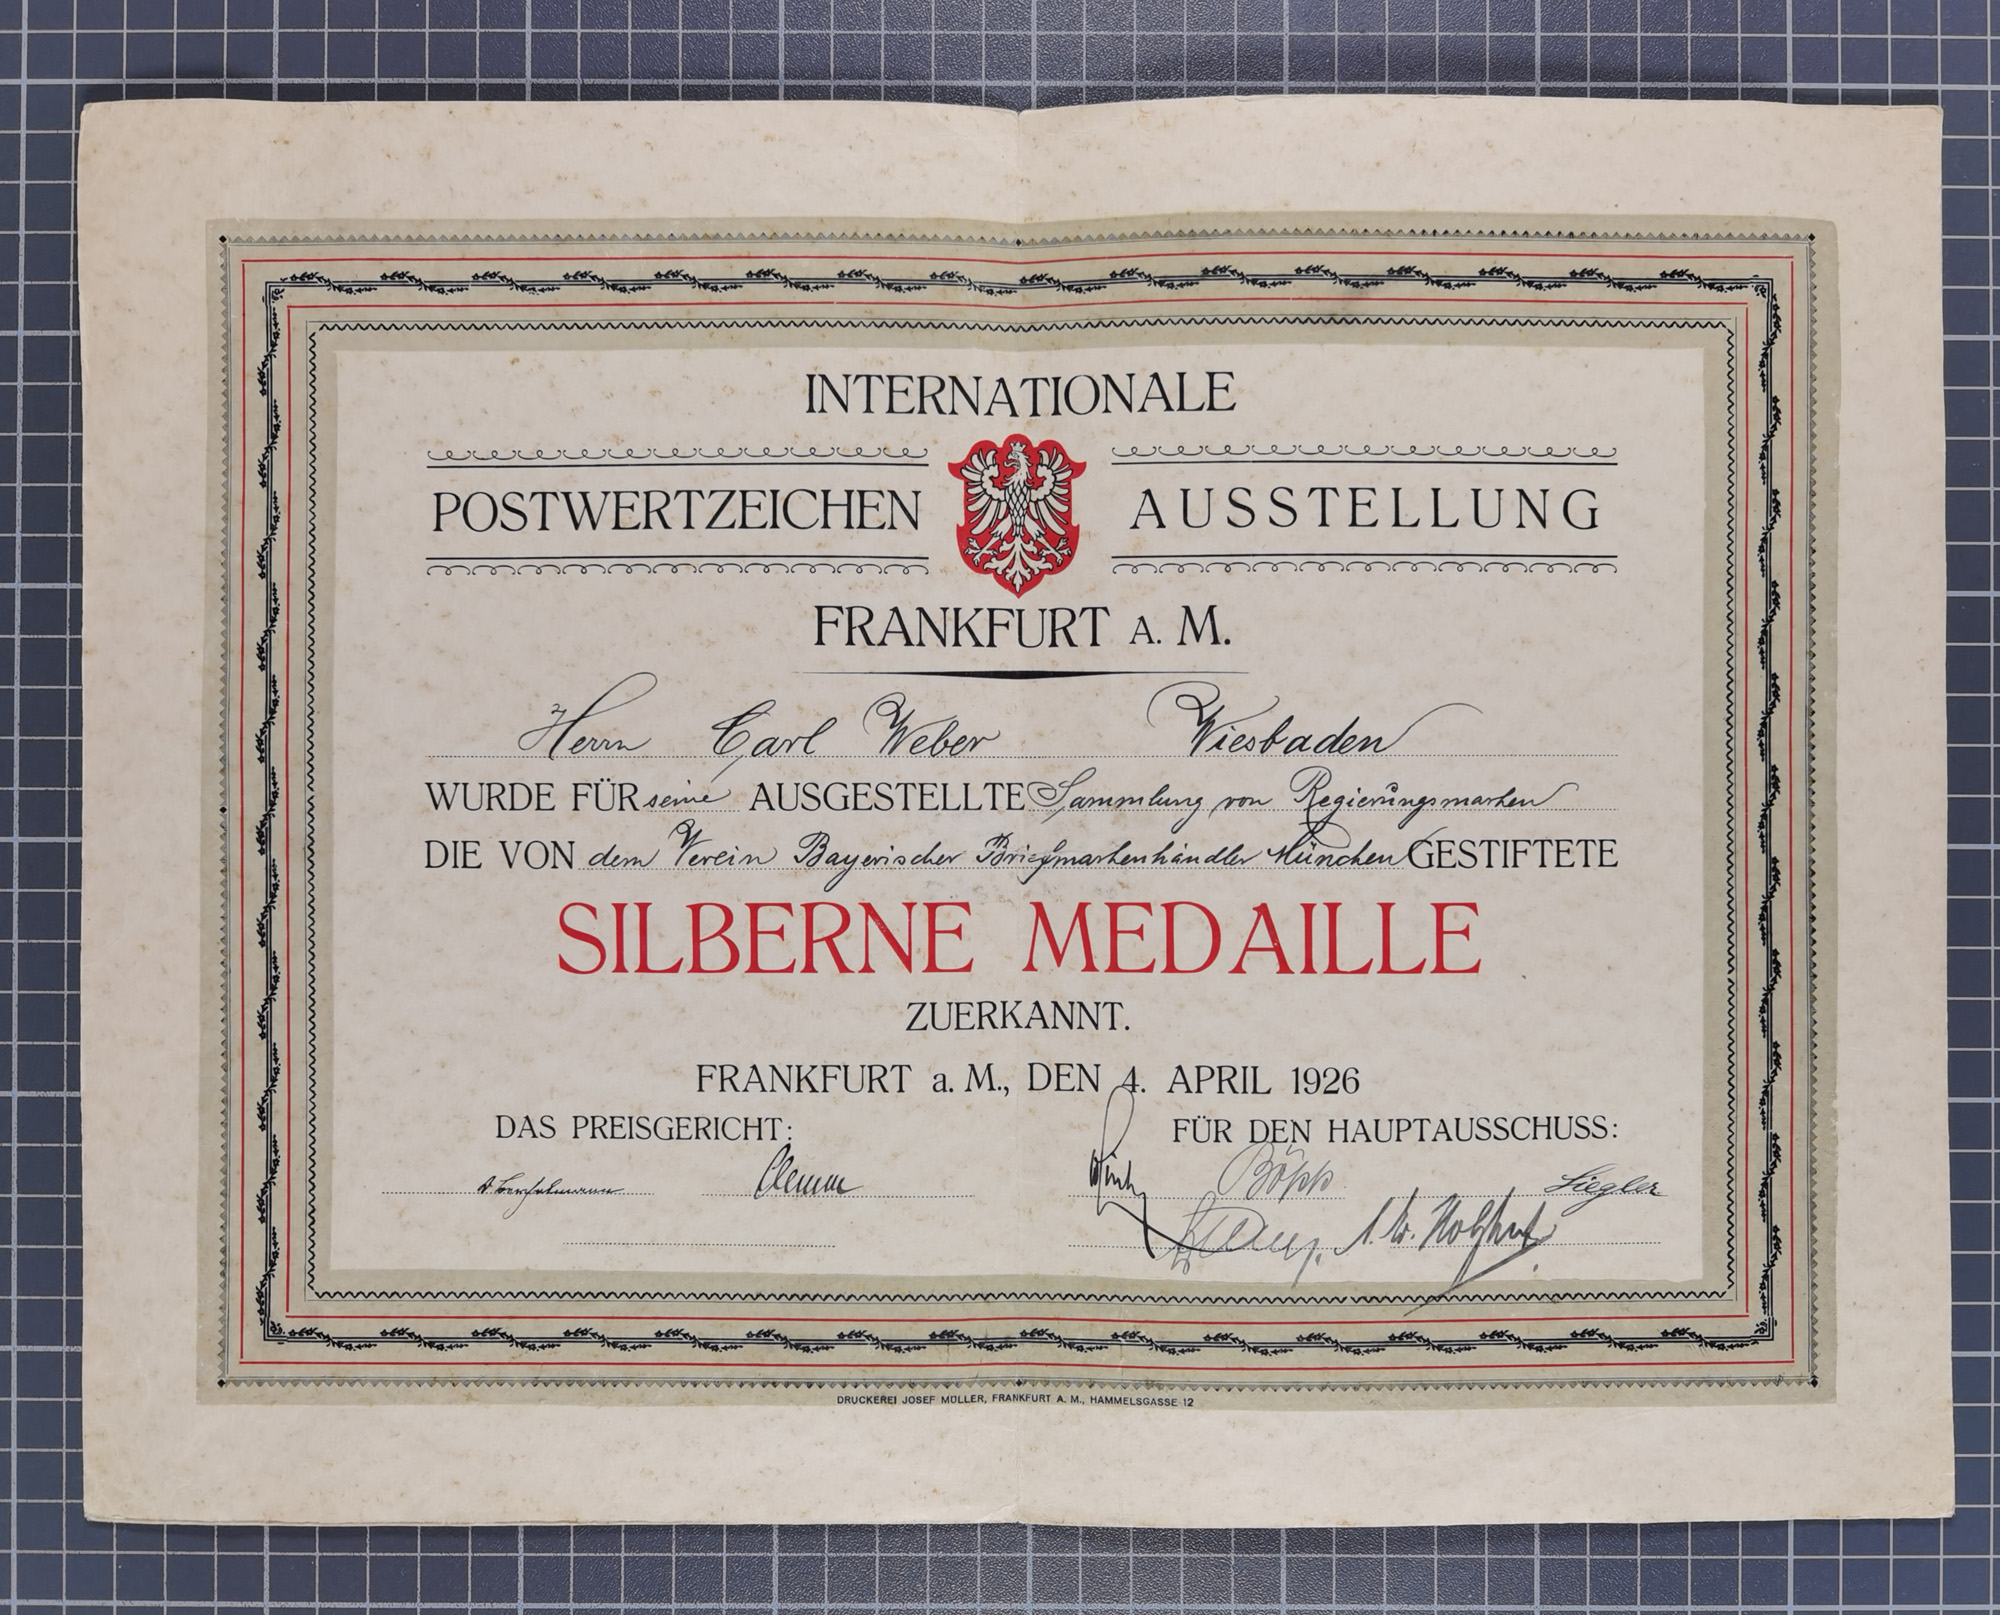 INTERNATIONALE
POSTWERTZEICHEN AUSSTELLUNG
FRANKFURT A. M.
Herrn Carl Weber Wiesbaden
WURDE FÜR seine AUSGESTELLTE Sammlung von Regierungsmarken
DIE VON dem Verein Bayerischer Briefmarkenhändler München GESTIFTETE
SILBERNE MEDAILLE
ZUERKANNT.
FRANKFURT a. M., DEN 4. APRIL 1926
DAS PREISGERICHT: FÜR DEN HAUPTAUSSCHUSS:
Clemm Böpp Siegler
DRUCKEREI JOSEF MÜLLER, FRANKFURT A. M., HAMMELSGASSE 12